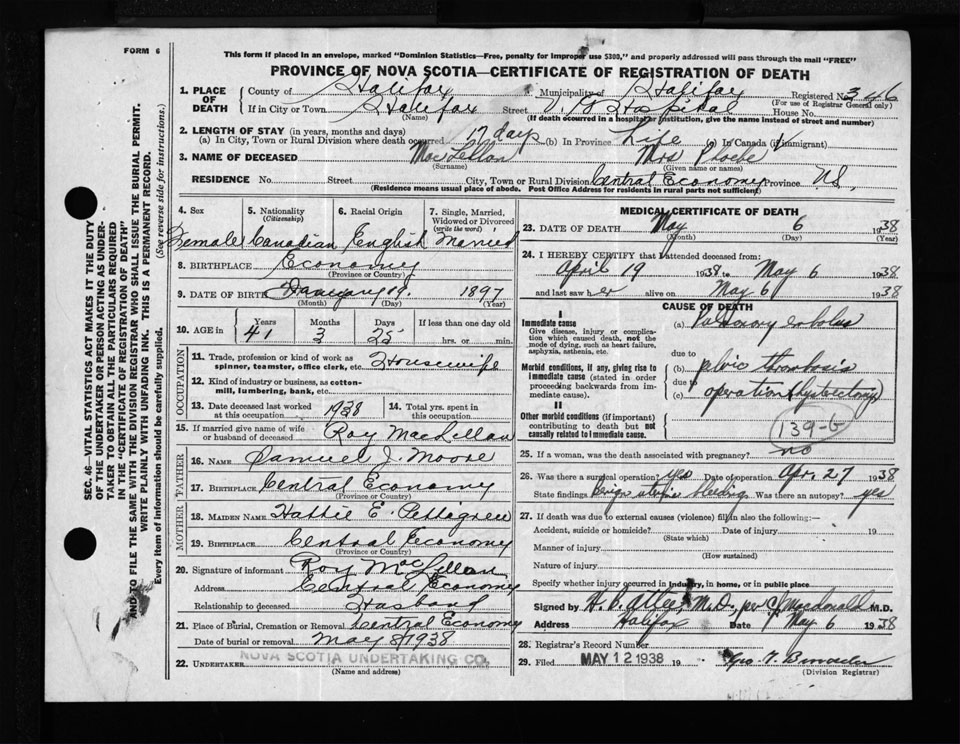 FORM 6
This form if placed in an envelope, marked "Dominion Statistics—Free, penalty for improper use $300," and properly addressed will pass through the mail "FREE"
PROVINCE OF NOVA SCOTIA—CERTIFICATE OF REGISTRATION OF DEATH
1. PLACE OF DEATH County of Halifax Municipality of Halifax Registered No. 346
(For use of Registrar General only)
If in City or Town Halifax Street V. G. Hospital House No.
(Name) (If death occurred in a hospital or institution, give the name instead of street and number)
2. LENGTH OF STAY (in years, months and days)
(a) In City, Town or Rural Division where death occurred 17 days (b) In Province Life (c) In Canada (if immigrant)
3. NAME OF DECEASED MacLellan Mrs Phoebe
(Surname) (Given name or names)
RESIDENCE No. Street City, Town or Rural Division Central Economy Province N.S.
(Residence means usual place of abode. Post Office Address for residents in rural parts not sufficient)
4. Sex 5. Nationality (Citizenship) 6. Racial Origin 7. Single, Married, Widowed or Divorced (write the word)
Female Canadian English Married
8. BIRTHPLACE Economy
(Province or Country)
9. DATE OF BIRTH January 1897
(Month) (Day) (Year)
10. AGE in Years Months Days If less than one day old
41 3 25 hrs. or min.
OCCUPATION
11. Trade, profession or kind of work as spinner, teamster, office clerk, etc. Housewife
12. Kind of industry or business, as cotton-mill, lumbering, bank, etc.
13. Date deceased last worked at this occupation 1938 14. Total yrs. spent in this occupation
15. If married give name of wife or husband of deceased Roy MacLellan
FATHER
16. NAME Samuel J. Moore
17. BIRTHPLACE Central Economy
(Province or Country)
MOTHER
18. MAIDEN NAME Hattie E.
19. BIRTHPLACE Central Economy
(Province or Country)
20. Signature of informant Roy MacLellan
Address Central Economy
Relationship to deceased Husband
21. Place of Burial, Cremation or Removal Central Economy
Date of burial or removal May 8 1938
22. UNDERTAKER NOVA SCOTIA UNDERTAKING CO.
(Name and address)
MEDICAL CERTIFICATE OF DEATH
23. DATE OF DEATH May 6 1938
(Month) (Day) (Year)
24. I HEREBY CERTIFY that I attended deceased from:
April 19 1938 to May 6 1938
and last saw her alive on May 6 1938
CAUSE OF DEATH
I
Immediate cause
Give disease, injury or complication which caused death, not the mode of dying, such as heart failure, asphyxia, asthenia, etc.
(a) Pulmonary embolus
due to
Morbid conditions, if any, giving rise to immediate cause (stated in order proceeding backwards from immediate cause).
(b) pelvic thrombosis
due to
(c) operation (Hysterectomy)
II
Other morbid conditions (if important) contributing to death but not causally related to immediate cause.
139-b
25. If a woman, was the death associated with pregnancy? no
26. Was there a surgical operation? yes Date of operation Apr. 27 1938
State findings benign uterine bleeding Was there an autopsy? yes
27. If death was due to external causes (violence) fill in also the following:—
Accident, suicide or homicide? Date of injury 19
(State which)
Manner of injury
(How sustained)
Nature of injury
Specify whether injury occurred in industry, in home, or in public place
Signed by H. B. Atlee, M.D., per C J Macdonald M.D.
Address Halifax Date May 6 1938
28. Registrar's Record Number
29. Filed MAY 12 1938 19
(Division Registrar)
SEC. 46—VITAL STATISTICS ACT MAKES IT THE DUTY
OF THE UNDERTAKER OR PERSON ACTING AS UNDER-
TAKER TO OBTAIN ALL THE PARTICULARS REQUIRED
IN THE "CERTIFICATE OF REGISTRATION OF DEATH"
AND TO FILE THE SAME WITH THE DIVISION REGISTRAR WHO SHALL ISSUE THE BURIAL PERMIT.
WRITE PLAINLY WITH UNFADING INK. THIS IS A PERMANENT RECORD.
Every item of information should be carefully supplied. (See reverse side for instructions.)